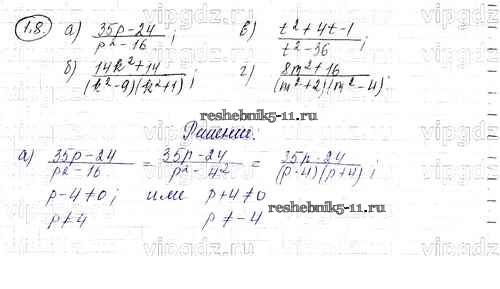 1.8. а) (35p-24)/(p²-16); в) (t²+4t-1)/(t²-36);
б) (14k²+14)/((k²-9)(k²+1)); г) (8m²+16)/((m²+2)(m²-4)).
reshebnik5-11.ru
Решение:
а) (35p-24)/(p²-16) = (35p-24)/(p²-4²) = (35p-24)/((p-4)(p+4));
p-4≠0; или p+4≠0
reshebnik5-11.ru
p≠4 p≠-4